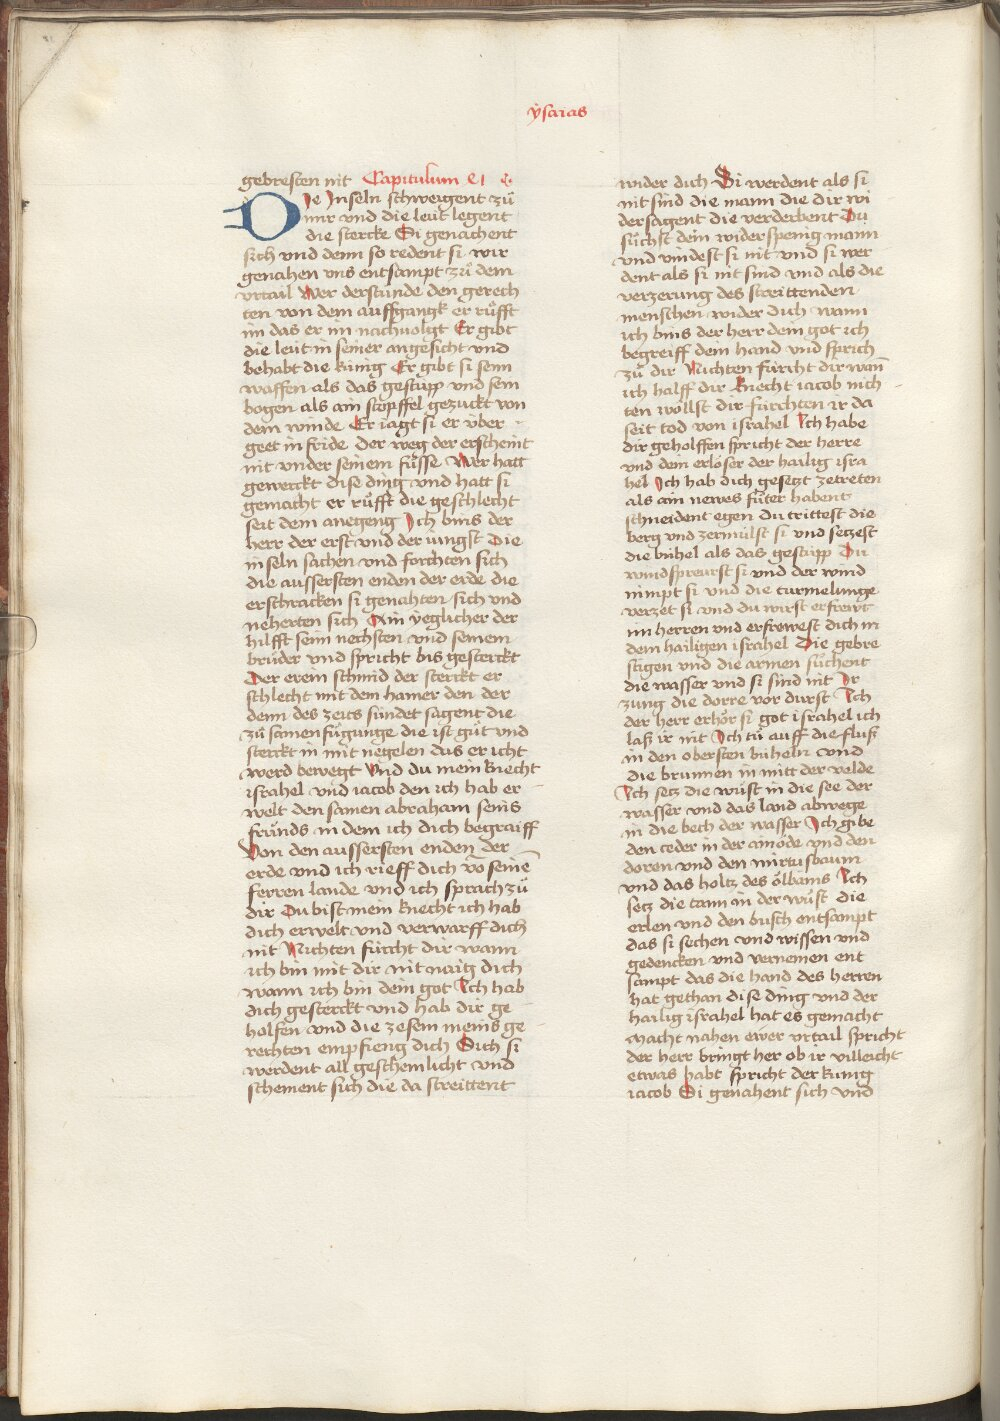 ÿsaias
gebresten nit Capitulum
Die Inseln schweigent zů
mir vnd die leüt legent
die stercke Si genachent
sich vnd denn so redent si wir
genahen vns entsampt zů dem
vrtail Wer derstůnde den gerech
ten von dem auffgangk er růfft
im das er im nachuolgt Er gibt
die leüt in seiner angesicht vnd
behabt die künig Er gibt si seim
waffen als das gestüpp vnd seim
bogen als ain stopffel gezuckt von
dem winde Er iagt si er über
geet in fride der weg der erscheint
nit vnder seinem fůsse Wer hatt
gewerckt dise ding vnd hatt si
gemacht er růfft die geschlecht
seit dem anegeng Ich bins der
herr der erst vnd der iungst Die
inseln sachen vnd forchten sich
die aussersten enden der erde die
erschracken si genahten sich vnd
neherten sich Ain yeglicher der
hilfft seim nechsten vnd seinem
brüder vnd spricht bis gesterckt
Der erein schmid der sterckt er
schlecht mit dem hamer den der
denn des zeits sündet sagent die
zů samenfügunge die ist gůt vnd
sterckt in mit negelen das er icht
werd bewegt Vnd du mein knecht
israhel vnd iacob den ich hab er
welt den samen abraham seins
fründs in dem ich dich begraiff
Von den aussersten enden der
erde vnd ich rieff dich võ seinẽ
ferren lande vnd ich sprach zů
dir Du bist mein knecht ich hab
dich erwelt vnd verwarff dich
nit Nichten fürcht dir wann
ich bin mit dir nit naig dich
wann ich bin dein got Ich hab
dich gesterckt vnd hab dir ge
holfen vnd die zesem meins ge
rechten empfieng dich Sich si
werdent all geschemlicht vnd
schement sich die da streittent
wider dich Si werdent als si
nit sind die mann die dir wi
dersagent die verderbent Du
sůchst dein widerspenig mann
vnd vindest si nit vnd si wer
dent als si nit sind vnd als die
verzerung des streittenden
menschen wider dich wann
ich bins der herr dein got ich
begreiff dein hand vnd sprich
zů dir Nichten fürcht dir wañ
ich halff dir knecht iacob nich
ten wöllst dir fürchten ir da
seit tod von israhel Ich habe
dir geholffen spricht der herre
vnd dein erlöser der hailig isra
hel Ich hab dich gesetzt zetreten
als ain newes fůter habent
schneident egen du trittest die
berg vnd zermülst si vnd setzest
die bühel als das gestüpp Du
windspreurst si vnd der wind
nimpt si vnd die turmelunge
verzet si vnd du wirst erfrewt
im herren vnd erfrewest dich in
dem hailigen israhel Die gebre
stigen vnd die armen sůchent
die wasser vnd si sind nit Ir
zung die dorre vor durst Ich
der herr erhör si got israhel ich
laß ir nit Ich tů auff die fluß
in den obersten büheln vnd
die brunnen in mitt der velde
Ich setz die wůst in die see der
wasser vnd das land abwege
in die bech der wasser Ich gibe
den ceder in der ainöde vnd den
doren vnd den mirtusbaum
vnd das holtz des ölbams Ich
setz die tann in der wůst die
erlen vnd den busch entsampt
das si sechen vnd wissen vnd
gedencken vnd vernemen ent
sampt das die hand des herren
hat gethan dise ding vnd der
hailig israhel hat es gemacht
Macht nahen eẅer vrtail spricht
der herr bringt her ob ir villeicht
etwas habt spricht der künig
iacob Si genahent sich vnd